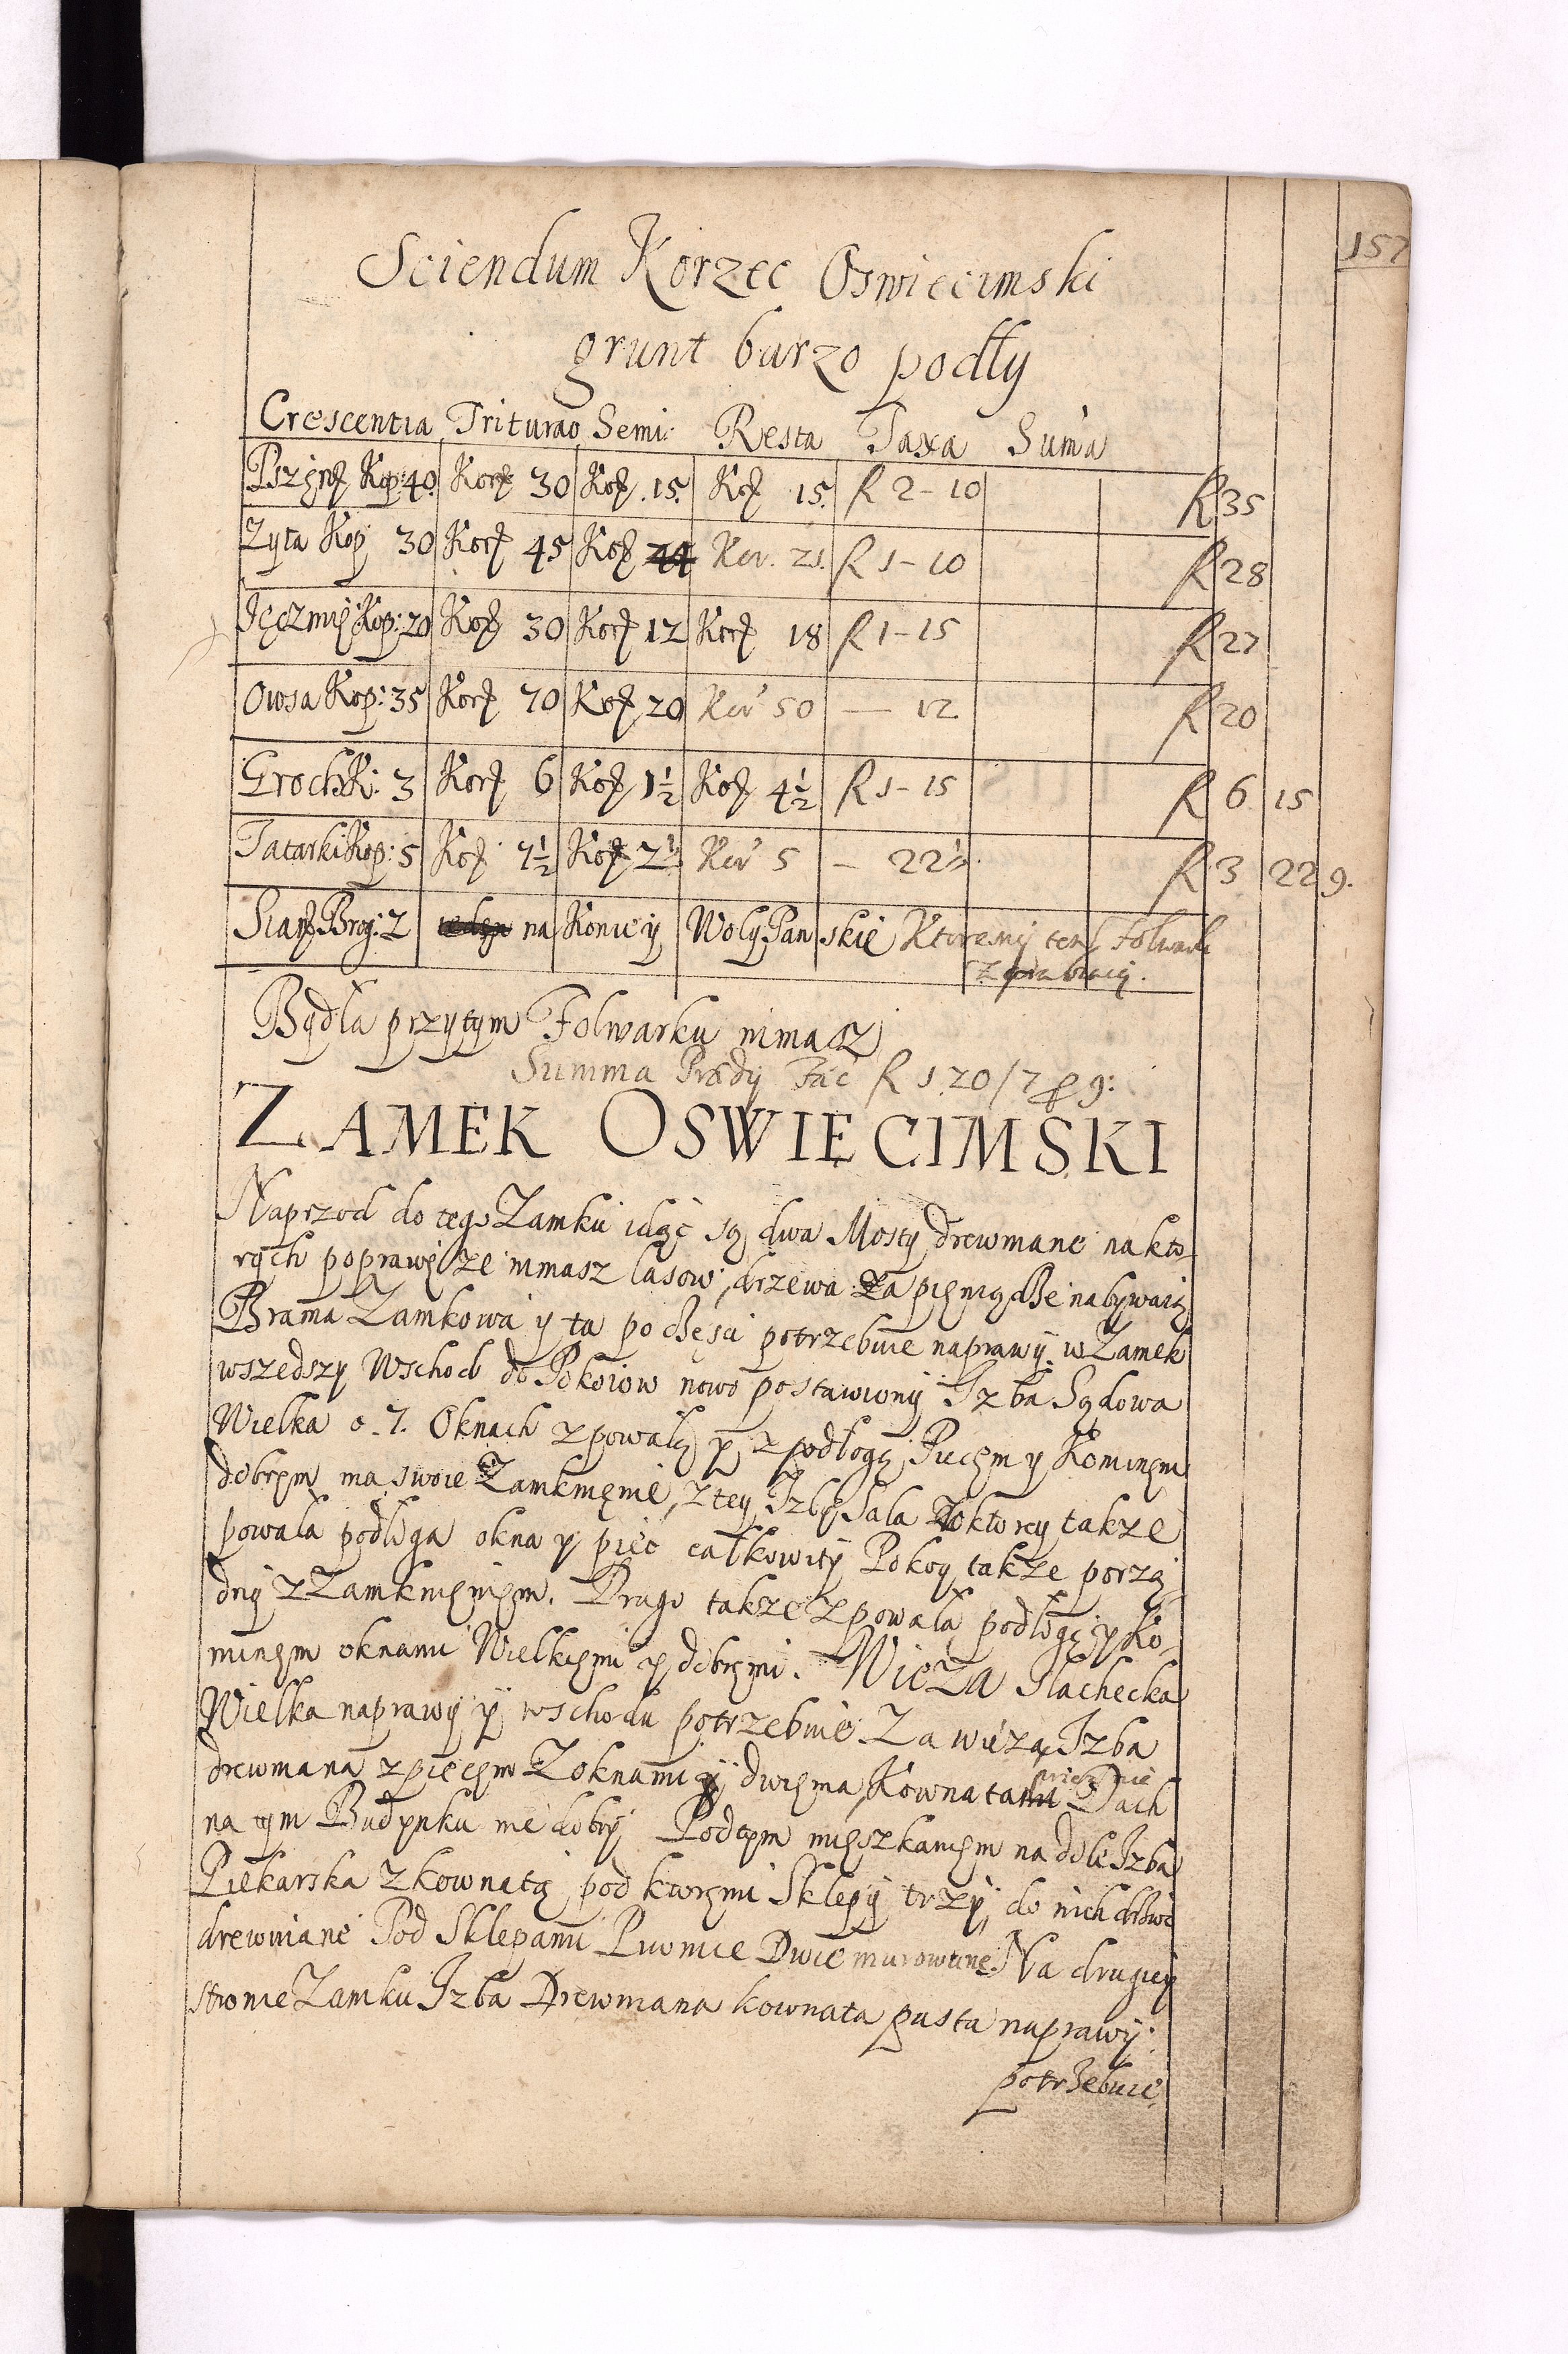 157
Sciendum Korzec Oswiecimski
grunt barzo podły
Crescentia Triturao Semi: Resta Taxa Suma
Pszęni Kop: 40. Korz 30 Korz .15. Korz 15. R 2-10 R 35
Zyta Kop 30 Korz 45 Korz 24 Kor. 21. R 1-10 R 28
Jęczmię Kop: 20 Korz 30 Korz 12 Korz 18 R 1-15 R 27
Owsa Kop: 35 Korz 70 Korz 20 Kor 50 — 12 R 20
Groch K: 3 Korz 6 Korz 1½ Korz 4½ R 1-15 R 6 15
Tatarki Kop: 5 Korz 7½ Korz 2½ Kor 5 - 22½ R 3 22 9.
Sian Brog: 2 na Konie y Woly Panskie Ktoremy ten Folwark
Bydła przytym Folwarku nimasz
Summa Prædy Fac R 120/7 p 9:
ZAMEK OSWIĘCIMSKI
Naprzod do tego Zamku idąc są dwa Mosty drewniane na kto-
rych poprawę ze nimasz lasow, drzewa za pieniądze nabywaią
Brama Zamkowa y ta po części potrzebuie naprawy. w Zamek
wszedszy Wschod do Pokoiow nowo postawiony Izba Sądowa
Wielka o .7. Oknach z powałą y z podłogą Piecem y Kominem
dobrem ma swoie Zamknięnie, z tey Izby Sala do ktorey takze
powała podłoga okna y piec całkowity Pokoy takze porzą
dny z Zamknieniem. Drugi takze z powała podłogą y Ko-
minem oknami Wielkiemi y dobremi. Wieza Slachecka
Wielka naprawy y wschodu potrzebuie. Za wiezą Izba
drewniana z piecem z oknami y dwiema Kownatami Dach
na tym Budynku nie dobry Podtym mieszkaniem na dole Izba
Piekarska z kownatą pod ktoremi Sklepy trzy, do nich drzwi
drewniane Pod Sklepami Piwnice Dwie murowane. Na drugiey
stronie Zamku Izba Drewniana kownata pusta naprawy:
potrzebuie